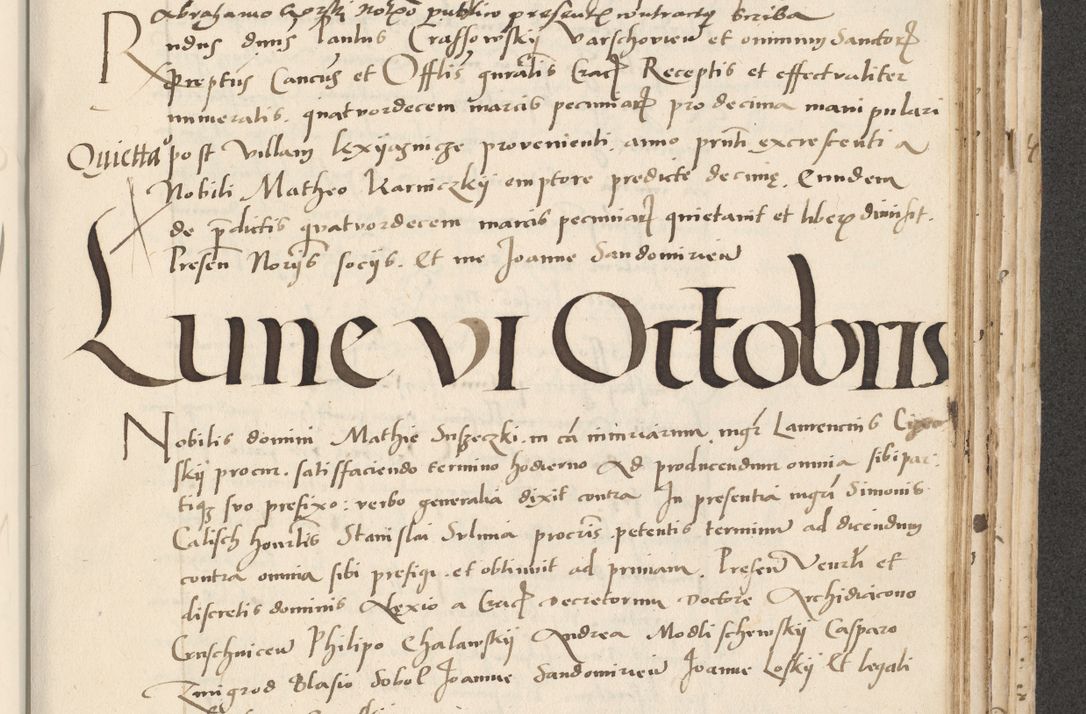 Abrahamo Gorski Notario publico presentis contractus scriba
Rndus dnus Paulus Crassowskÿ Varschovien et omnium Sanctorum
Preptus Cancus et Offlis gnralis Crac Receptis et effectualiter
numeratis quatuordecem marcis pecuniar pro decima manipulari
Quietta post villam provenienti anno prnti excrescenti a
Nobili Matheo Karniczkÿ emptore predicte decime. Eundem
de pdictis quatuordecem marcis pecuniar quietavit et libere dimisit.
Presen Norijs socijs. Et me Joanne Sandomirien
Lune VI Octobris
Nobilis domini Mathie in ca iniuriarum mgr Laurencius
skÿ procur. satisfaciendo termino hodierno Ad producendum omnia sibi par
tiq suo prefixo: verbo generalia dixit contra In presentia mgri Simonis
Calisch honrlis Stanislai Sulima procris petentis terminum ad dicendum
contra omnia sibi prefigi et obtinuit ad primam. Presen Venrli et
discretis dominis Alexio a Crac Decretorum Doctore Archidiacono
Philipo Chalawskÿ Andrea Modlischewskÿ Casparo
Zmigrod Blasio Sobol Joanne Sandomirien Joanne Loskÿ Et legali